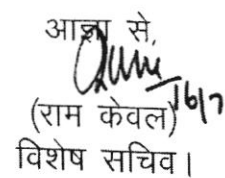 आज्ञा से,
16/7
(राम केवल)
विशेष सचिव।